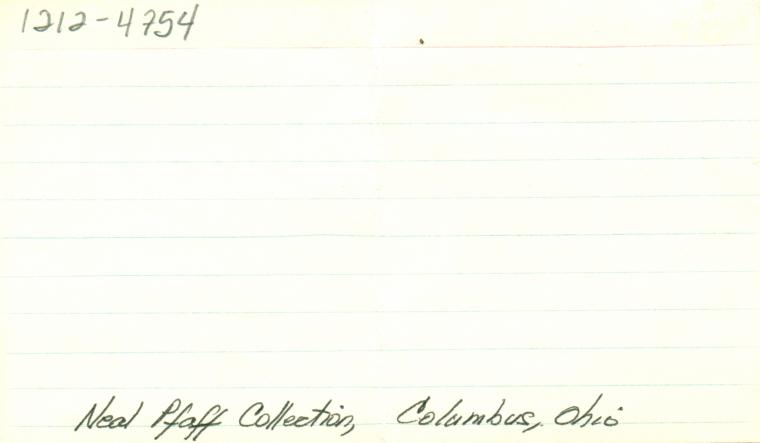 1212-4754
Neal Pfaff Collection, Columbus, Ohio